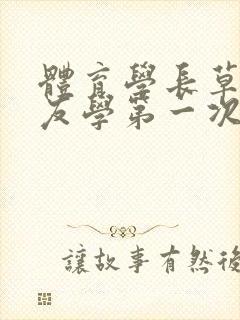 體育學長草
友學第一次
讓故事有然後